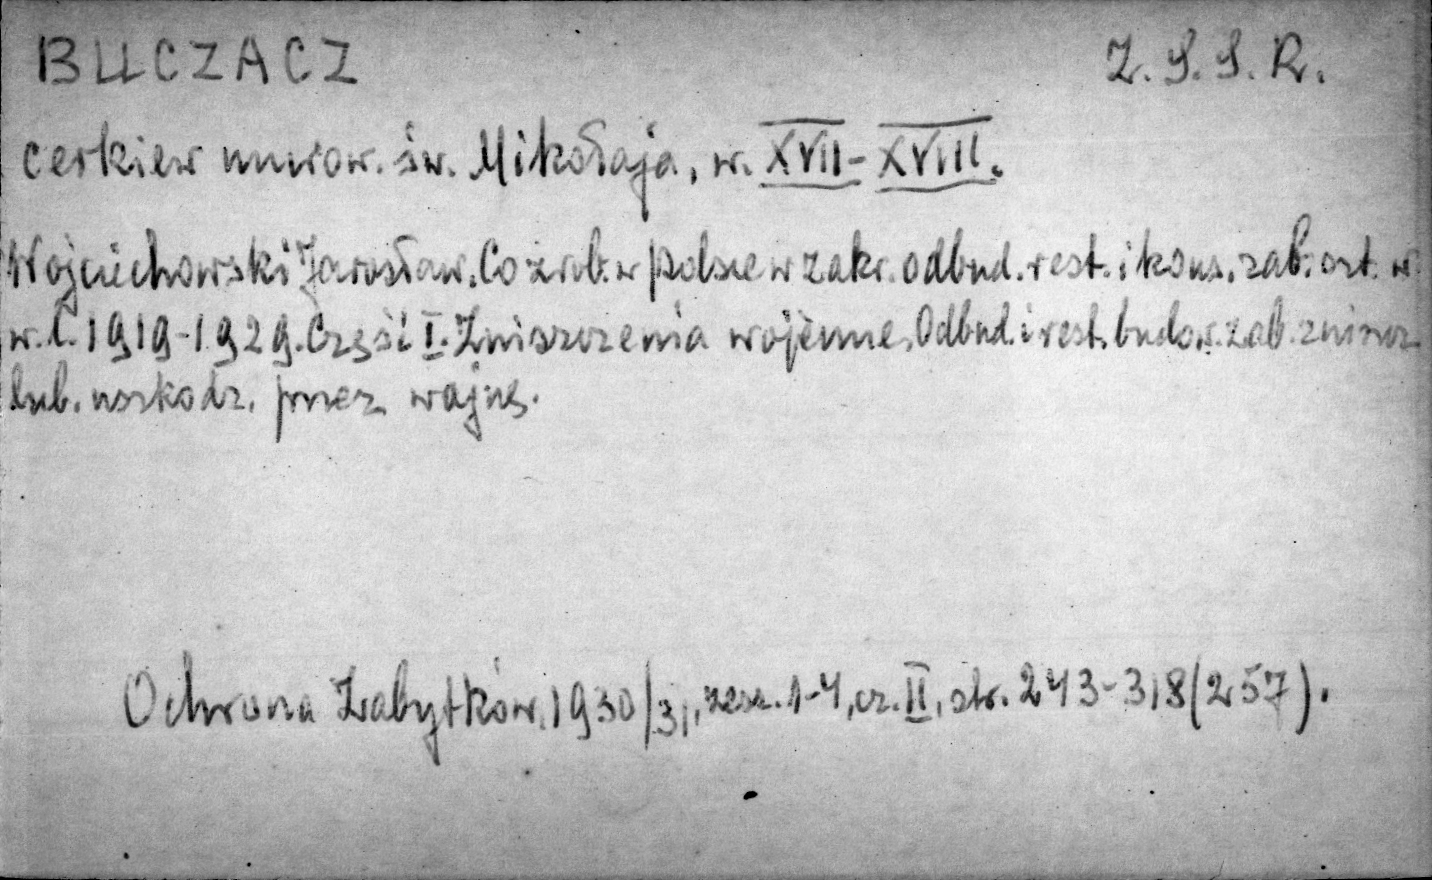 BUCZACZ Z.S.S.R.
cerkiew murow. św. Mikołaja, w. XVII-XVIII.
Wojciechowski Jarosław. Co zrob. w Polsce w zakr. odbud. rest. i kons. zab. art. w
w l. 1919-1929. Część I. Zniszczenia wojenne. Odbud. i rest. budow. zab. zniszcz
lub. uszkodz. przez wojnę.
Ochrona Zabytków, 1930/31, zesz. 1-4, cz. II, str. 243-318 (257).